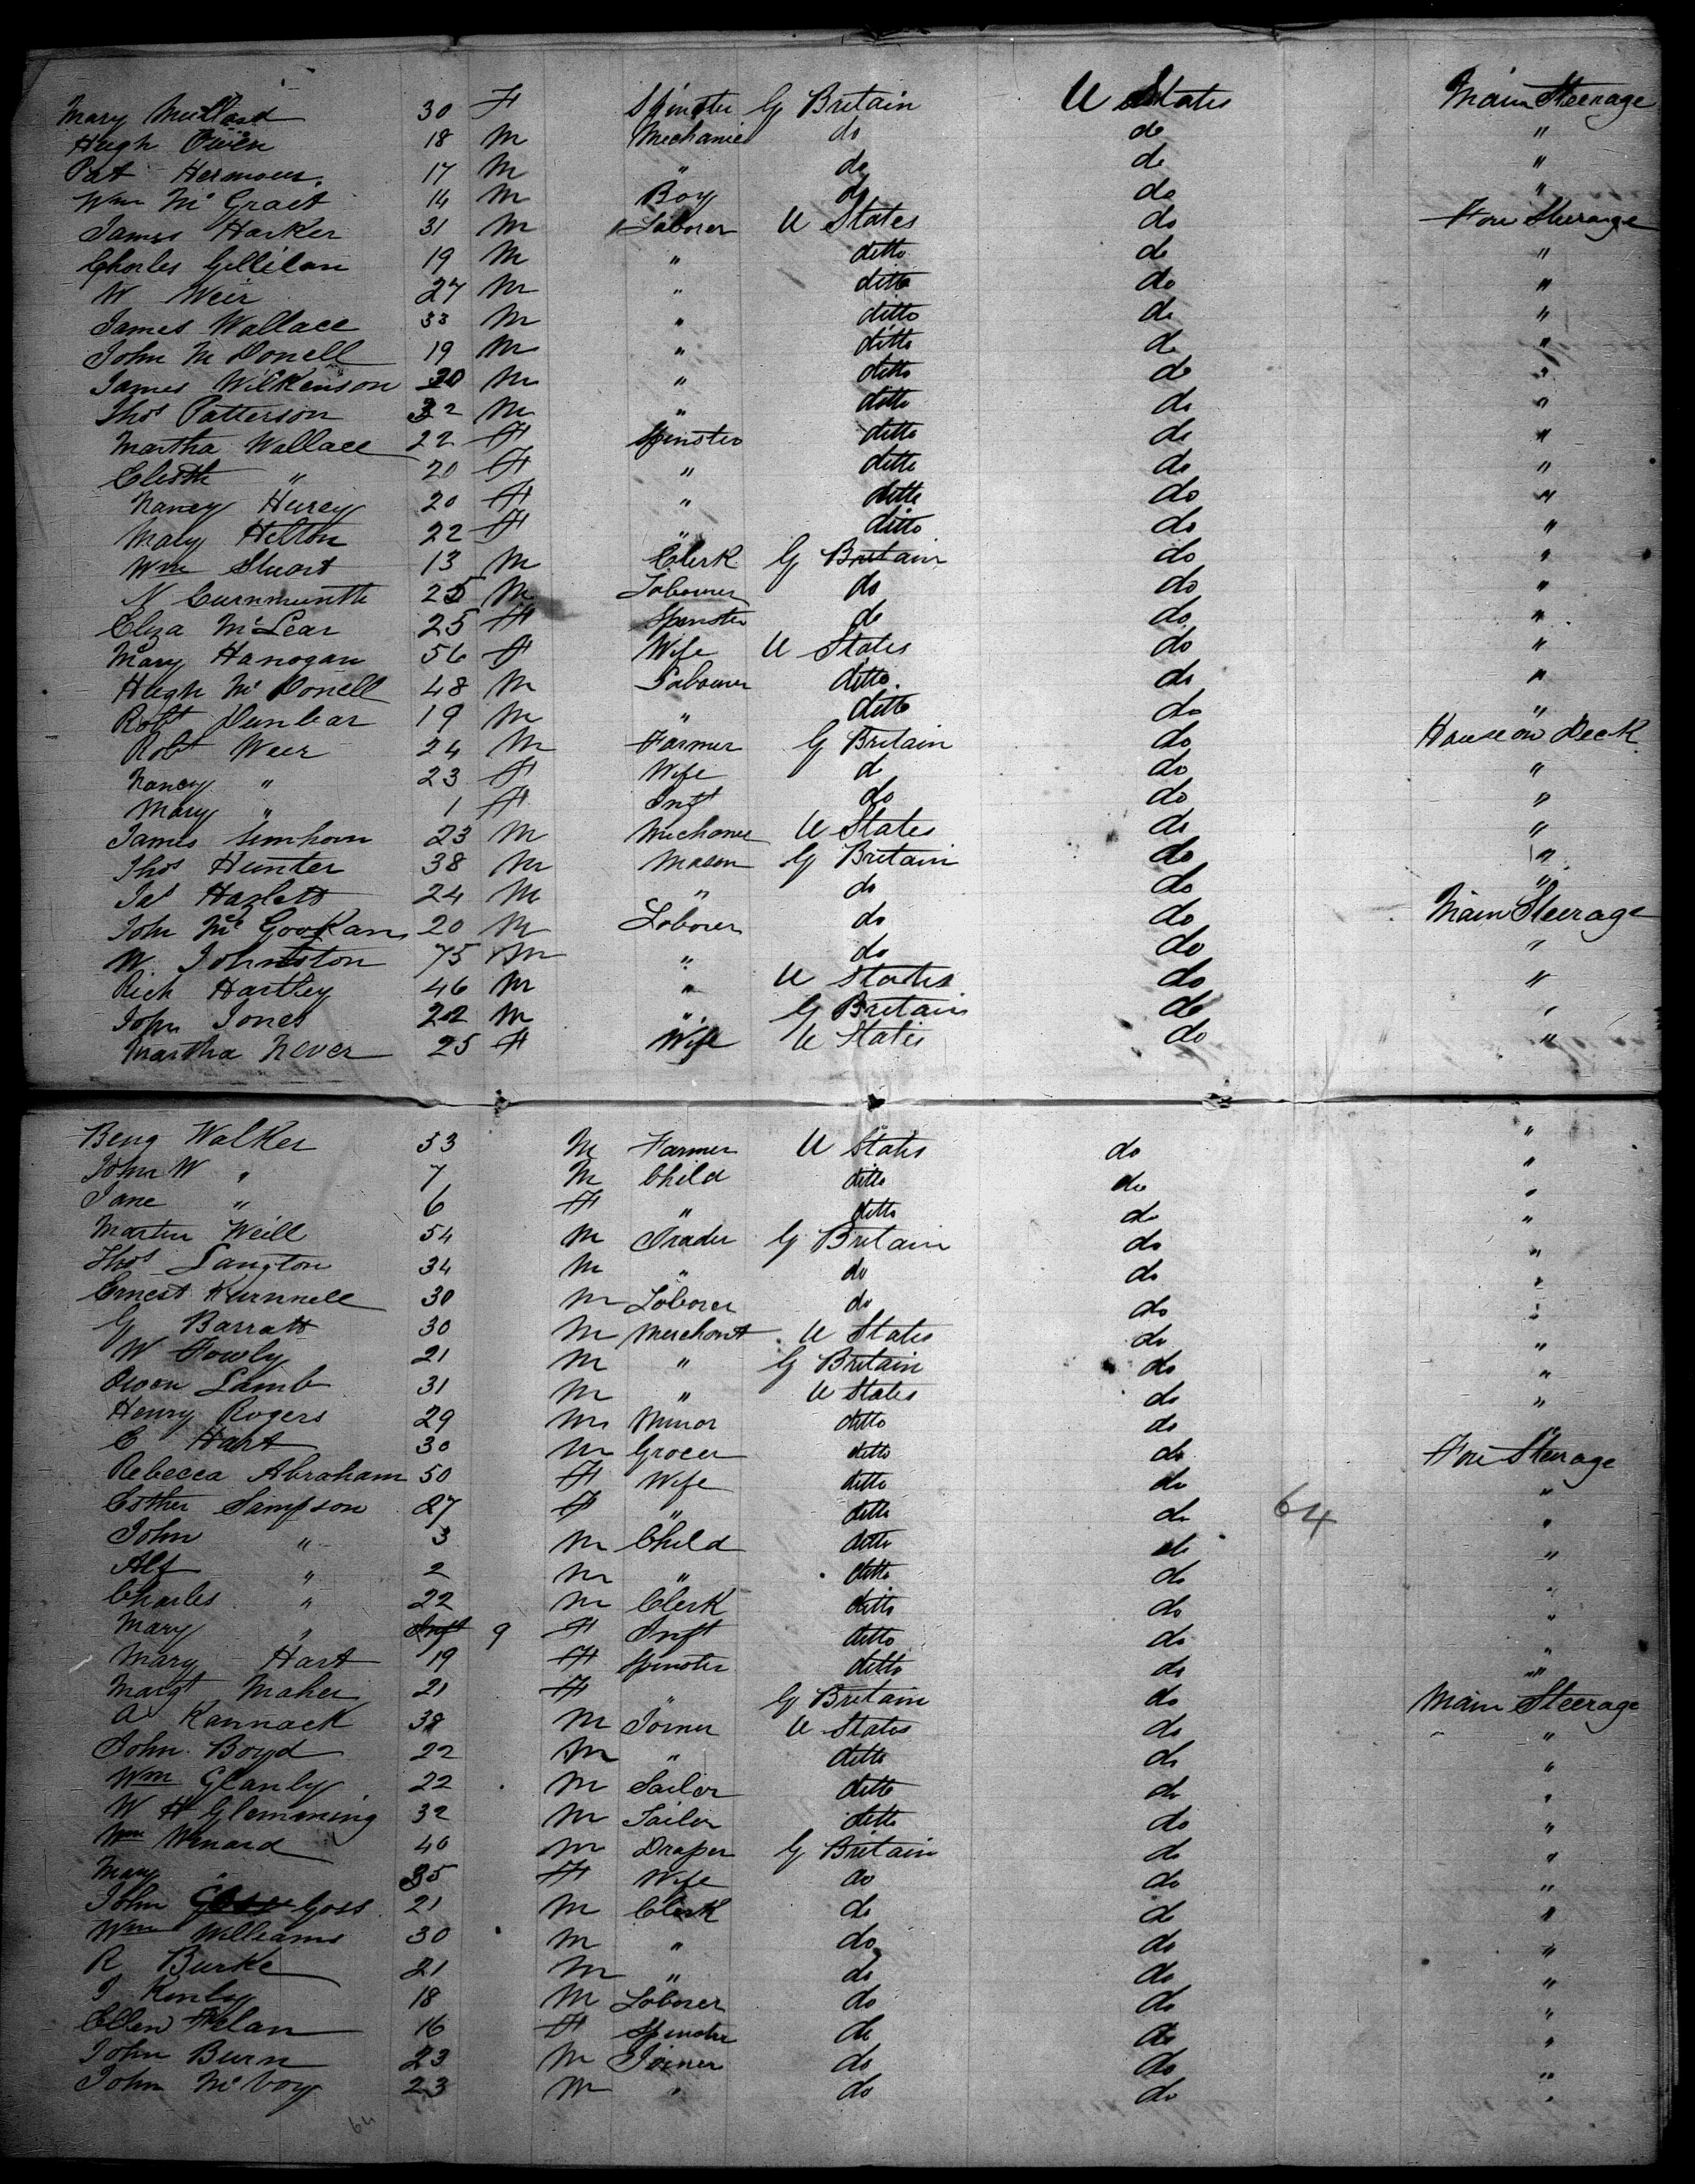 Mary Mullard 30 F Spinster G Britain U States Main Steerage
Hugh Owen 18 M Mechanic do do "
Pat Hermous 17 M " do do "
Wm Mc Grait 14 M Boy do do "
James Harker 31 M Laborer U States do Fore Steerage
Charles Gillilan 19 M " ditto do "
W Weir 27 M " ditto do "
James Wallace 33 M " ditto do "
John Mc Donell 19 M " ditto do "
James Wilkenson 20 M " ditto do "
Thos Patterson 32 M " ditto do "
Martha Wallace 22 F Spinster ditto do "
Elisth " 20 F " ditto do "
Nancy Hurey 20 F " ditto do "
Mary Hilton 22 F " ditto do "
Wm Stuart 13 M Clerk G Britain do "
N Curnmunth 25 M Labourer do do "
Eliza McLear 25 F Spinster do do "
Mary Hanogan 56 F Wife U States do "
Hugh Mc Donell 48 M Labourer ditto do "
Robt Dunbar 19 M " ditto do "
Robt Weer 24 M Farmer G Britain do House on Deck
Nancy " 23 F Wife do do "
Mary " 1 F Inft do do "
James 23 M Mechanic U States do "
Thos Hunter 38 M Mason G Britain do "
Jas Hazlett 24 M " do do "
John Mc Gookan 20 M Laborer do do Main Steerage
W Johnston 75 M " do do "
Rich Hartley 46 M " U States do "
John Jones 22 M " G Britain do "
Martha Never 25 F Wife U States do "
Benj Walker 53 M Farmer U States do "
John W " 7 M Child ditto do "
Jane " 6 F " ditto do "
Martin Weill 54 M Trader G Britain do "
Thos Langton 34 M " do do "
Ernest Kurnnell 30 M Laborer do do "
G Barratt 30 M Merchant U States do "
W Fowly 21 M " G Britain do "
Owen Lamb 31 M " U States do "
Henry Rogers 29 M Minor ditto do "
C Hart 30 M Grocer ditto do Fore Steerage
Rebecca Abraham 50 F Wife ditto do "
Esther Sampson 27 F " ditto do 64 "
John " 3 M Child ditto do "
Alf " 2 M " ditto do "
Charles " 22 M Clerk ditto do "
Mary " Inft 9 F Inft ditto do "
Mary Hart 19 F Spinster ditto do "
Margt Maher 21 F " G Britain do Main Steerage
A Kannack 38 M Joiner U States do "
John Boyd 22 M " ditto do "
Wm Glanly 22 M Sailor ditto do "
W H Glemming 32 M Tailor ditto do "
Wm Winard 40 M Draper G Britain do "
Mary " 35 F Wife do do "
John Goss 21 M Clerk do do "
Wm Williams 30 M " do do "
R Burke 21 M " do do "
J Kenly 18 M Laborer do do "
Ellen Felan 16 F Spinster do do "
John Burn 23 M Joiner do do "
John Mc Evoy 23 M " do do "
64